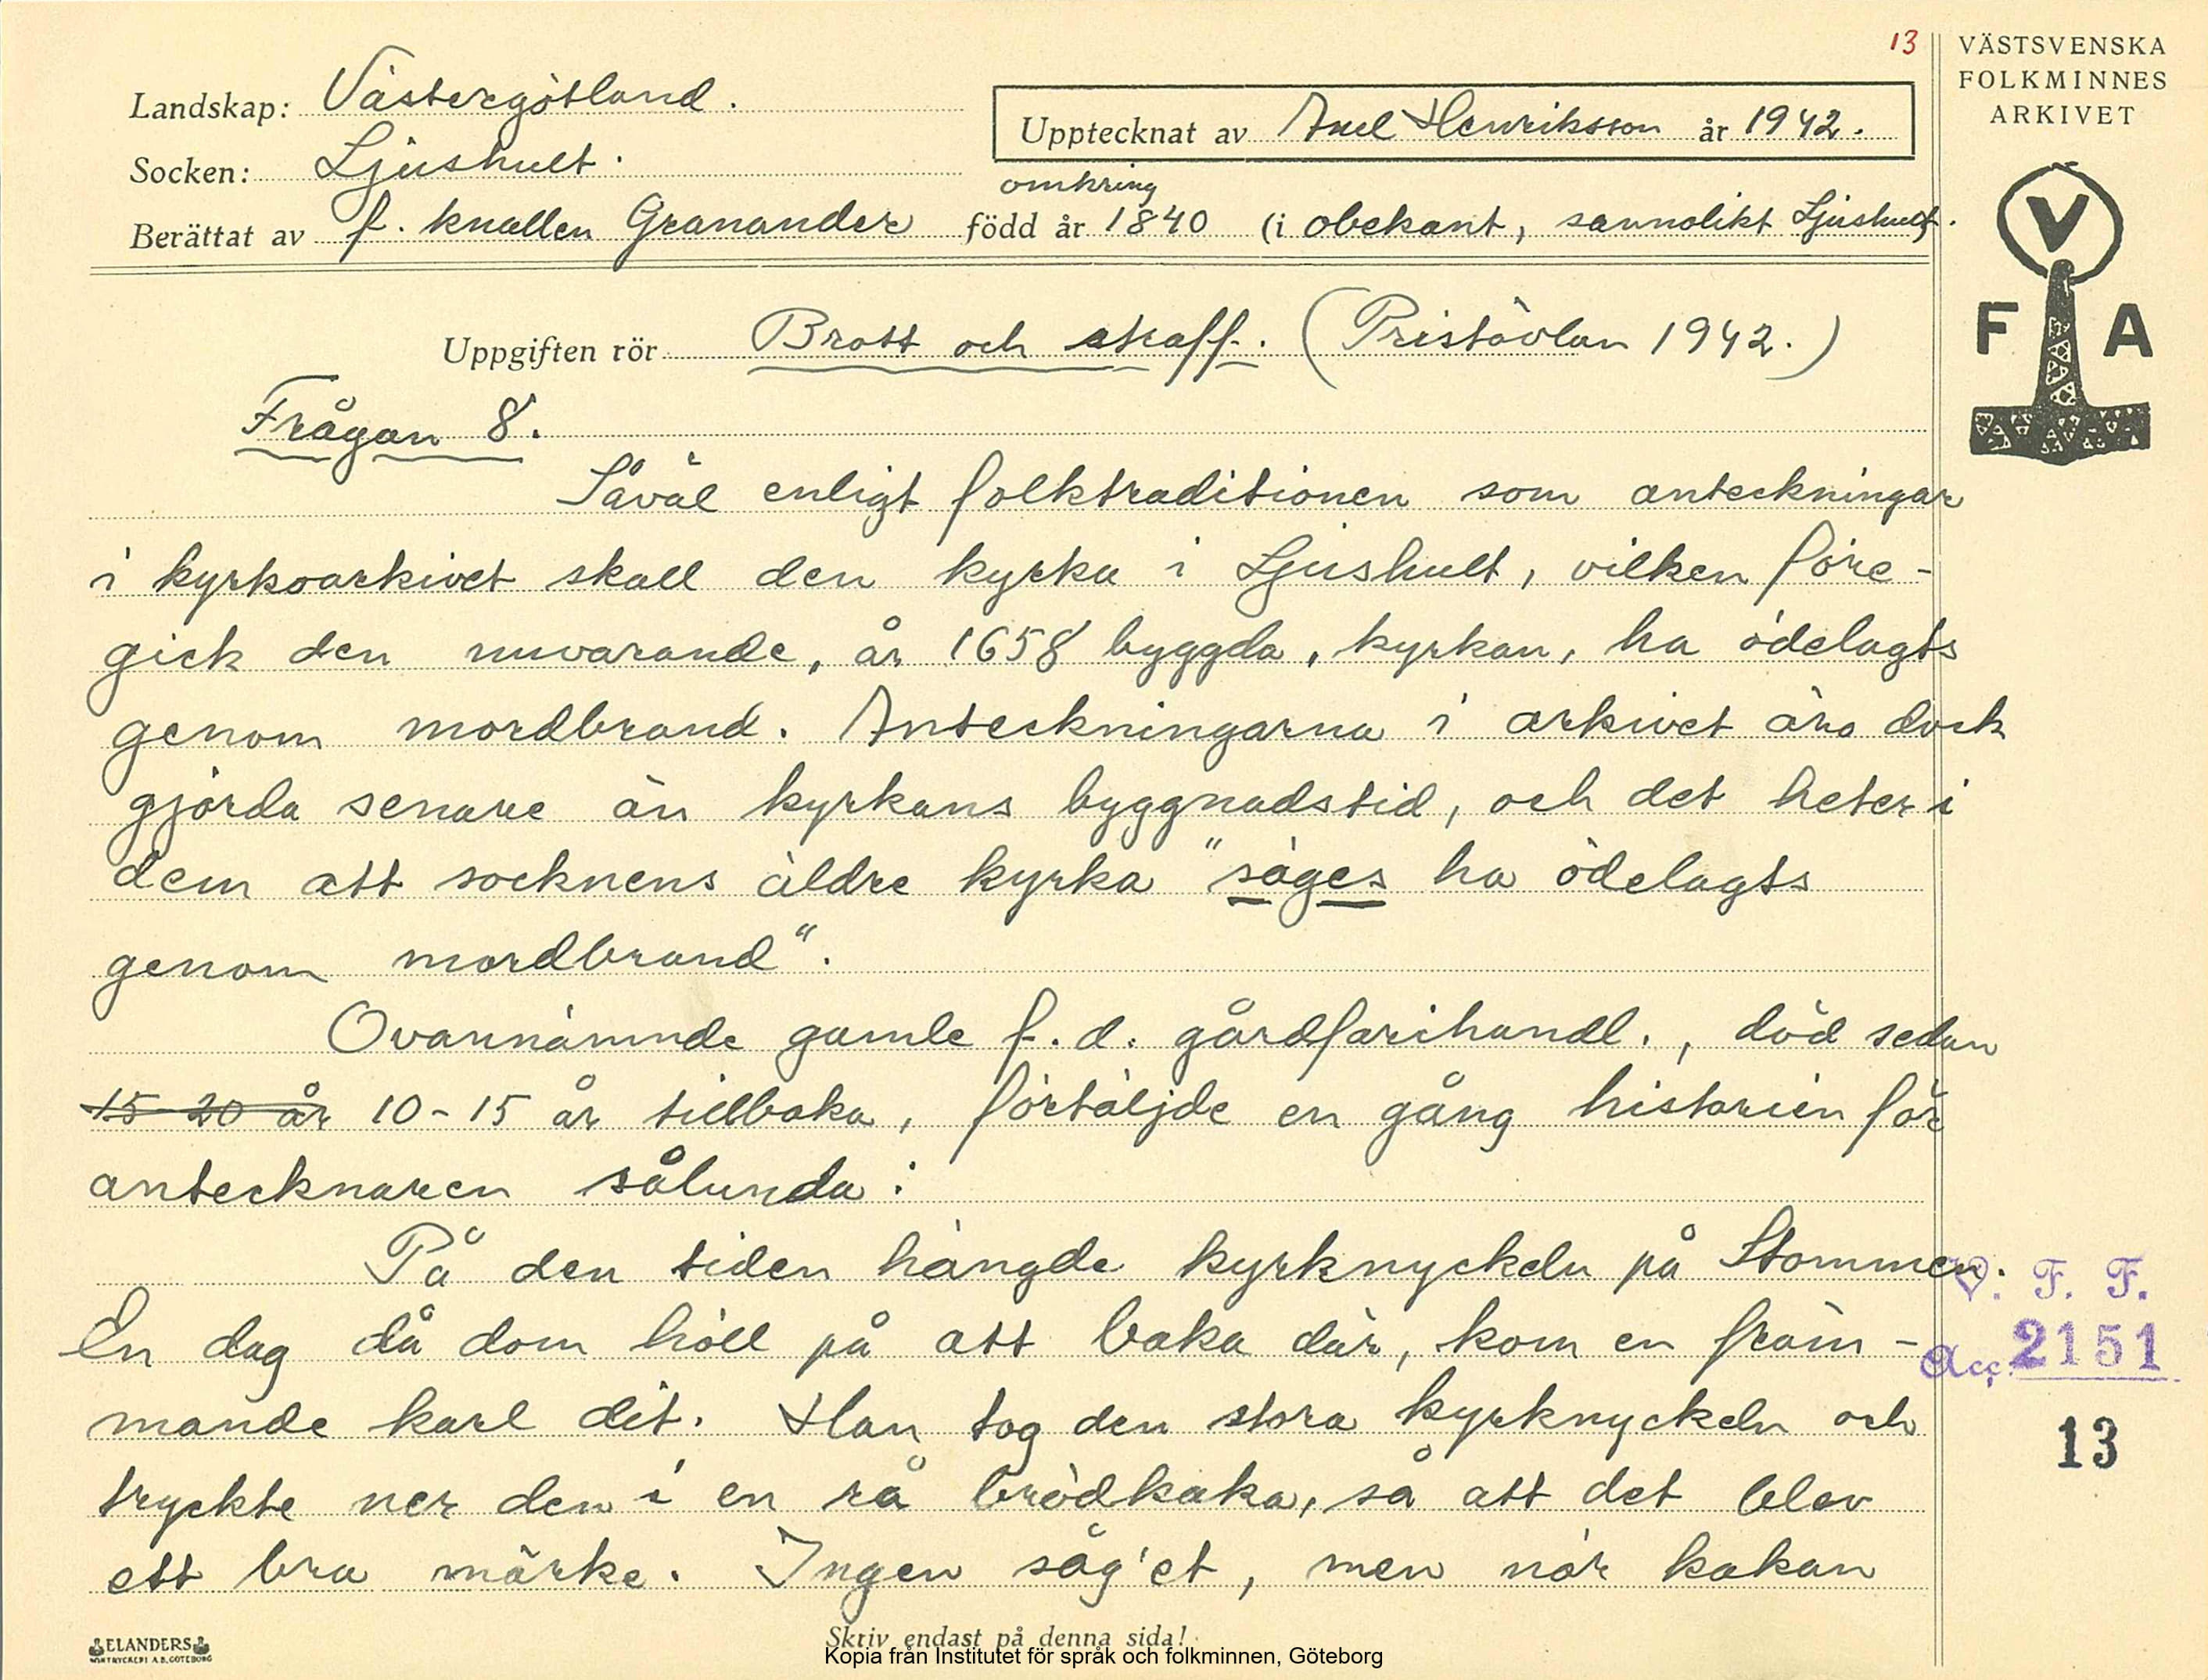 13
VÄSTSVENSKA
FOLKMINNES
ARKIVET
Landskap: Västergötland.
Upptecknat av Axel Henriksson år 1942.
Socken: Ljushult.
omkring
Berättat av f. knallen Granander född år 1840 (i obekant, sannolikt Ljushult.
V
F A
Uppgiften rör Brott och straff. (Pristävlan 1942.)
Frågan 8.
Såväl enligt folktraditionen som anteckningar
i kyrkoarkivet skall den kyrka i Ljushult, vilken före-
gick den nuvarande, år 1658 byggda, kyrkan, ha ödelagts
genom mordbrand. Anteckningarna i arkivet äro dock
gjorda senare än kyrkans byggnadstid, och det heter i
dem att socknens äldre kyrka "säges ha ödelagts
genom mordbrand".
Ovannämnde gamle f. d. gårdfarihandl., död sedan
15-20 år 10-15 år tillbaka, förtäljde en gång historien för
antecknaren sålunda:
På den tiden hängde kyrknyckeln på Stommen.
En dag då dom höll på att baka där, kom en främ-
mande karl dit. Han tog den stora kyrknyckeln och
tryckte ner den i en rå brödkaka, så att det blev
ett bra märke. Ingen såg'et, men när kakan
V. F. F.
Acc. 2151
13
ELANDERS
BOKTRYCKERI A.B. GÖTEBORG
Skriv endast på denna sida!
Kopia från Institutet för språk och folkminnen, Göteborg